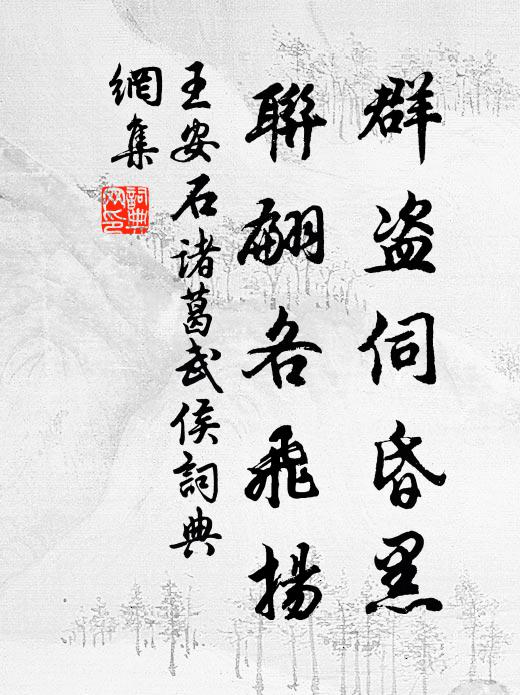 群盗伺昏黑
聯翩各飛揚
王安石諸葛武侯詞典
網集
詞典
网印